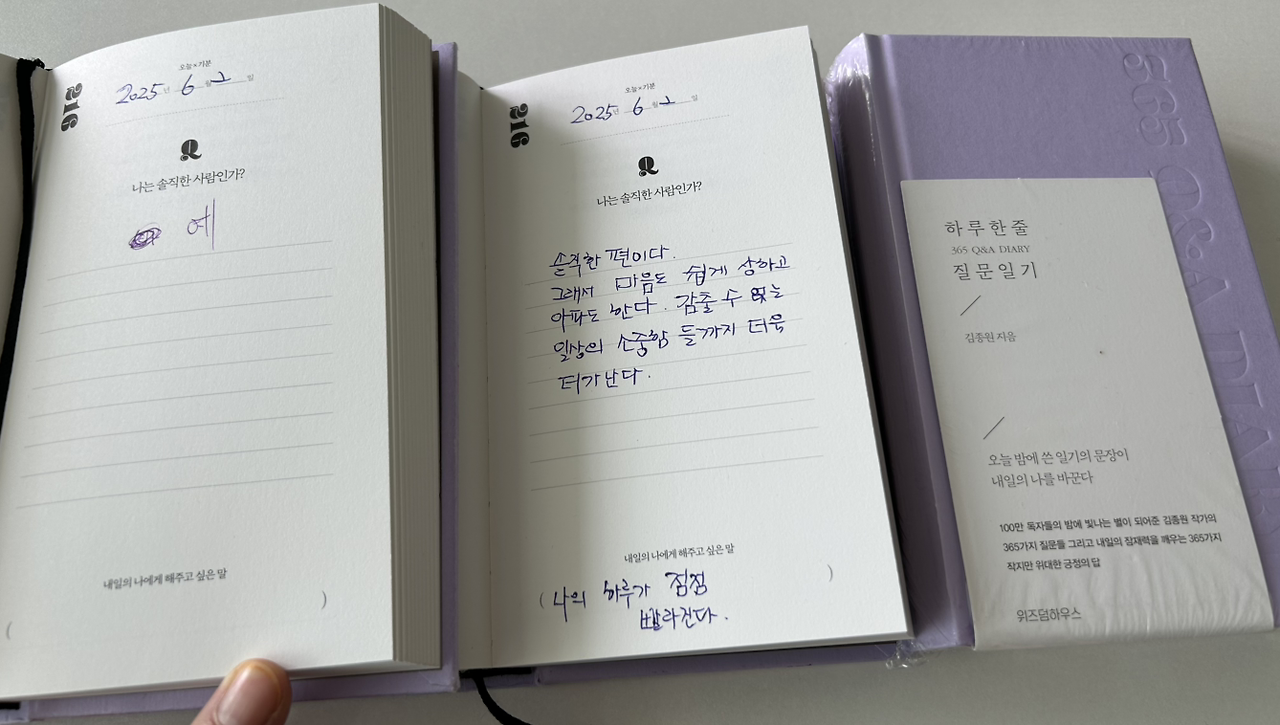 216
오늘×기분
2025년 6월 2일
Q
나는 솔직한 사람인가?
예
내일의 나에게 해주고 싶은 말
( )
216
오늘×기분
2025년 6월 2일
Q
나는 솔직한 사람인가?
솔직한 편이다.
그래서 마음도 쉽게 상하고
아파도 한다. 감출 수 없는
일상의 소중함 들까지 더욱
티가 난다.
내일의 나에게 해주고 싶은 말
(나의 하루가 점점
빨라진다. )
365 Q&A DIARY
하루 한 줄
365 Q&A DIARY
질문 일기
김종원 지음
오늘 밤에 쓴 일기의 문장이
내일의 나를 바꾼다
100만 독자들의 밤에 빛나는 별이 되어준 김종원 작가의
365가지 질문들 그리고 내일의 잠재력을 깨우는 365가지
작지만 위대한 긍정의 답
위즈덤하우스